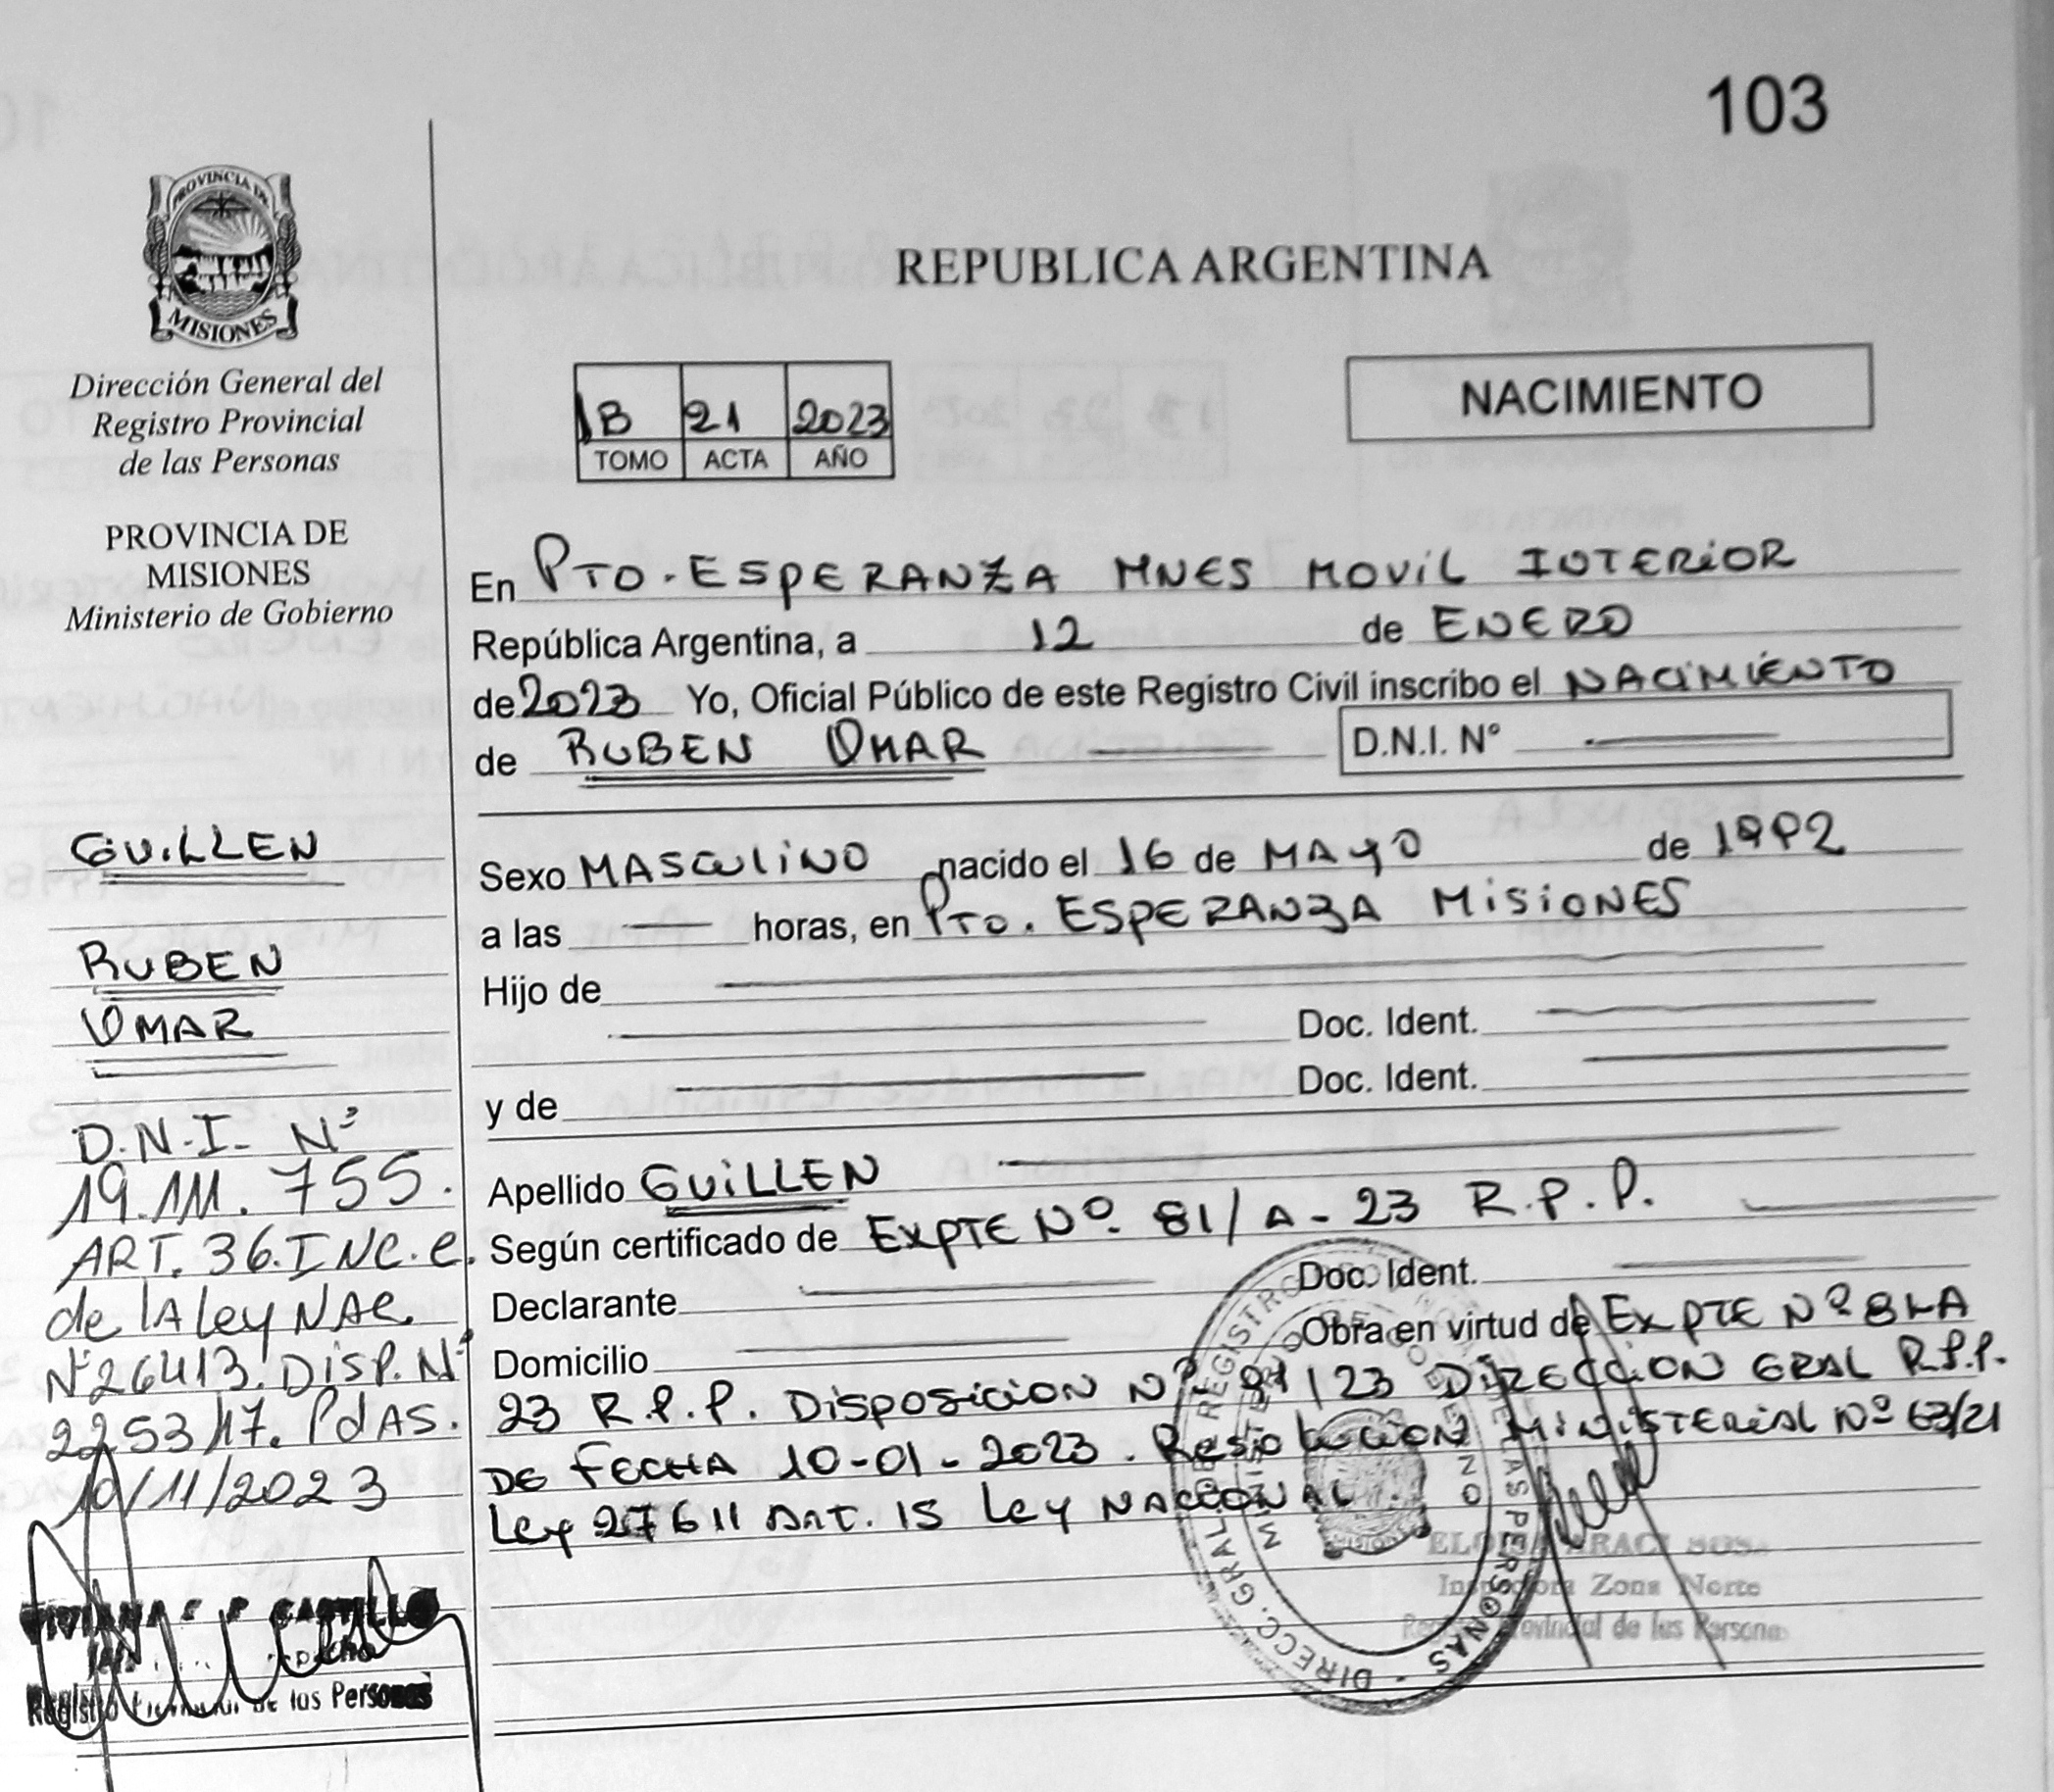 103
PROVINCIA DE
MISIONES
Dirección General del
Registro Provincial
de las Personas
PROVINCIA DE
MISIONES
Ministerio de Gobierno
REPUBLICA ARGENTINA
1B 21 2023
TOMO ACTA AÑO
NACIMIENTO
En PTO. ESPERANZA MNES MOVIL INTERIOR
República Argentina, a 12 de ENERO
de 2023 Yo, Oficial Público de este Registro Civil inscribo el NACIMIENTO
de RUBEN OMAR D.N.I. N°
Sexo MASCULINO nacido el 16 de MAYO de 1992
a las horas, en PTO. ESPERANZA MISIONES
Hijo de
Doc. Ident.
y de Doc. Ident.
Apellido GUILLEN
Según certificado de EXPTE Nº 81/A-23 R.P.P.
Declarante Doc. Ident.
Domicilio Obra en virtud de EXPTE Nº
23 R.P.P. DISPOSICION Nº /23 DIRECCION GRAL R.P.P.
DE FECHA 10-01-2023. RESOLUCION MINISTERIAL Nº 63/21
Ley 27611 ART. 15 Ley NACIONAL.
GUILLEN
RUBEN
OMAR
D.N.I. Nº
19.111.755.
ART. 36. INC. e.
de lA ley NAC.
Nº 26413. DISP. Nº
2253/17. PdAS.
10/11/2023
CASTILLO
Registro de las Personas
DIRECC. GRAL. DE REGISTRO DE LAS PERSONAS
MINISTERIO DE GOBIERNO
ARACI SOSA
Inspectora Zona Norte
Registro Provincial de las Personas